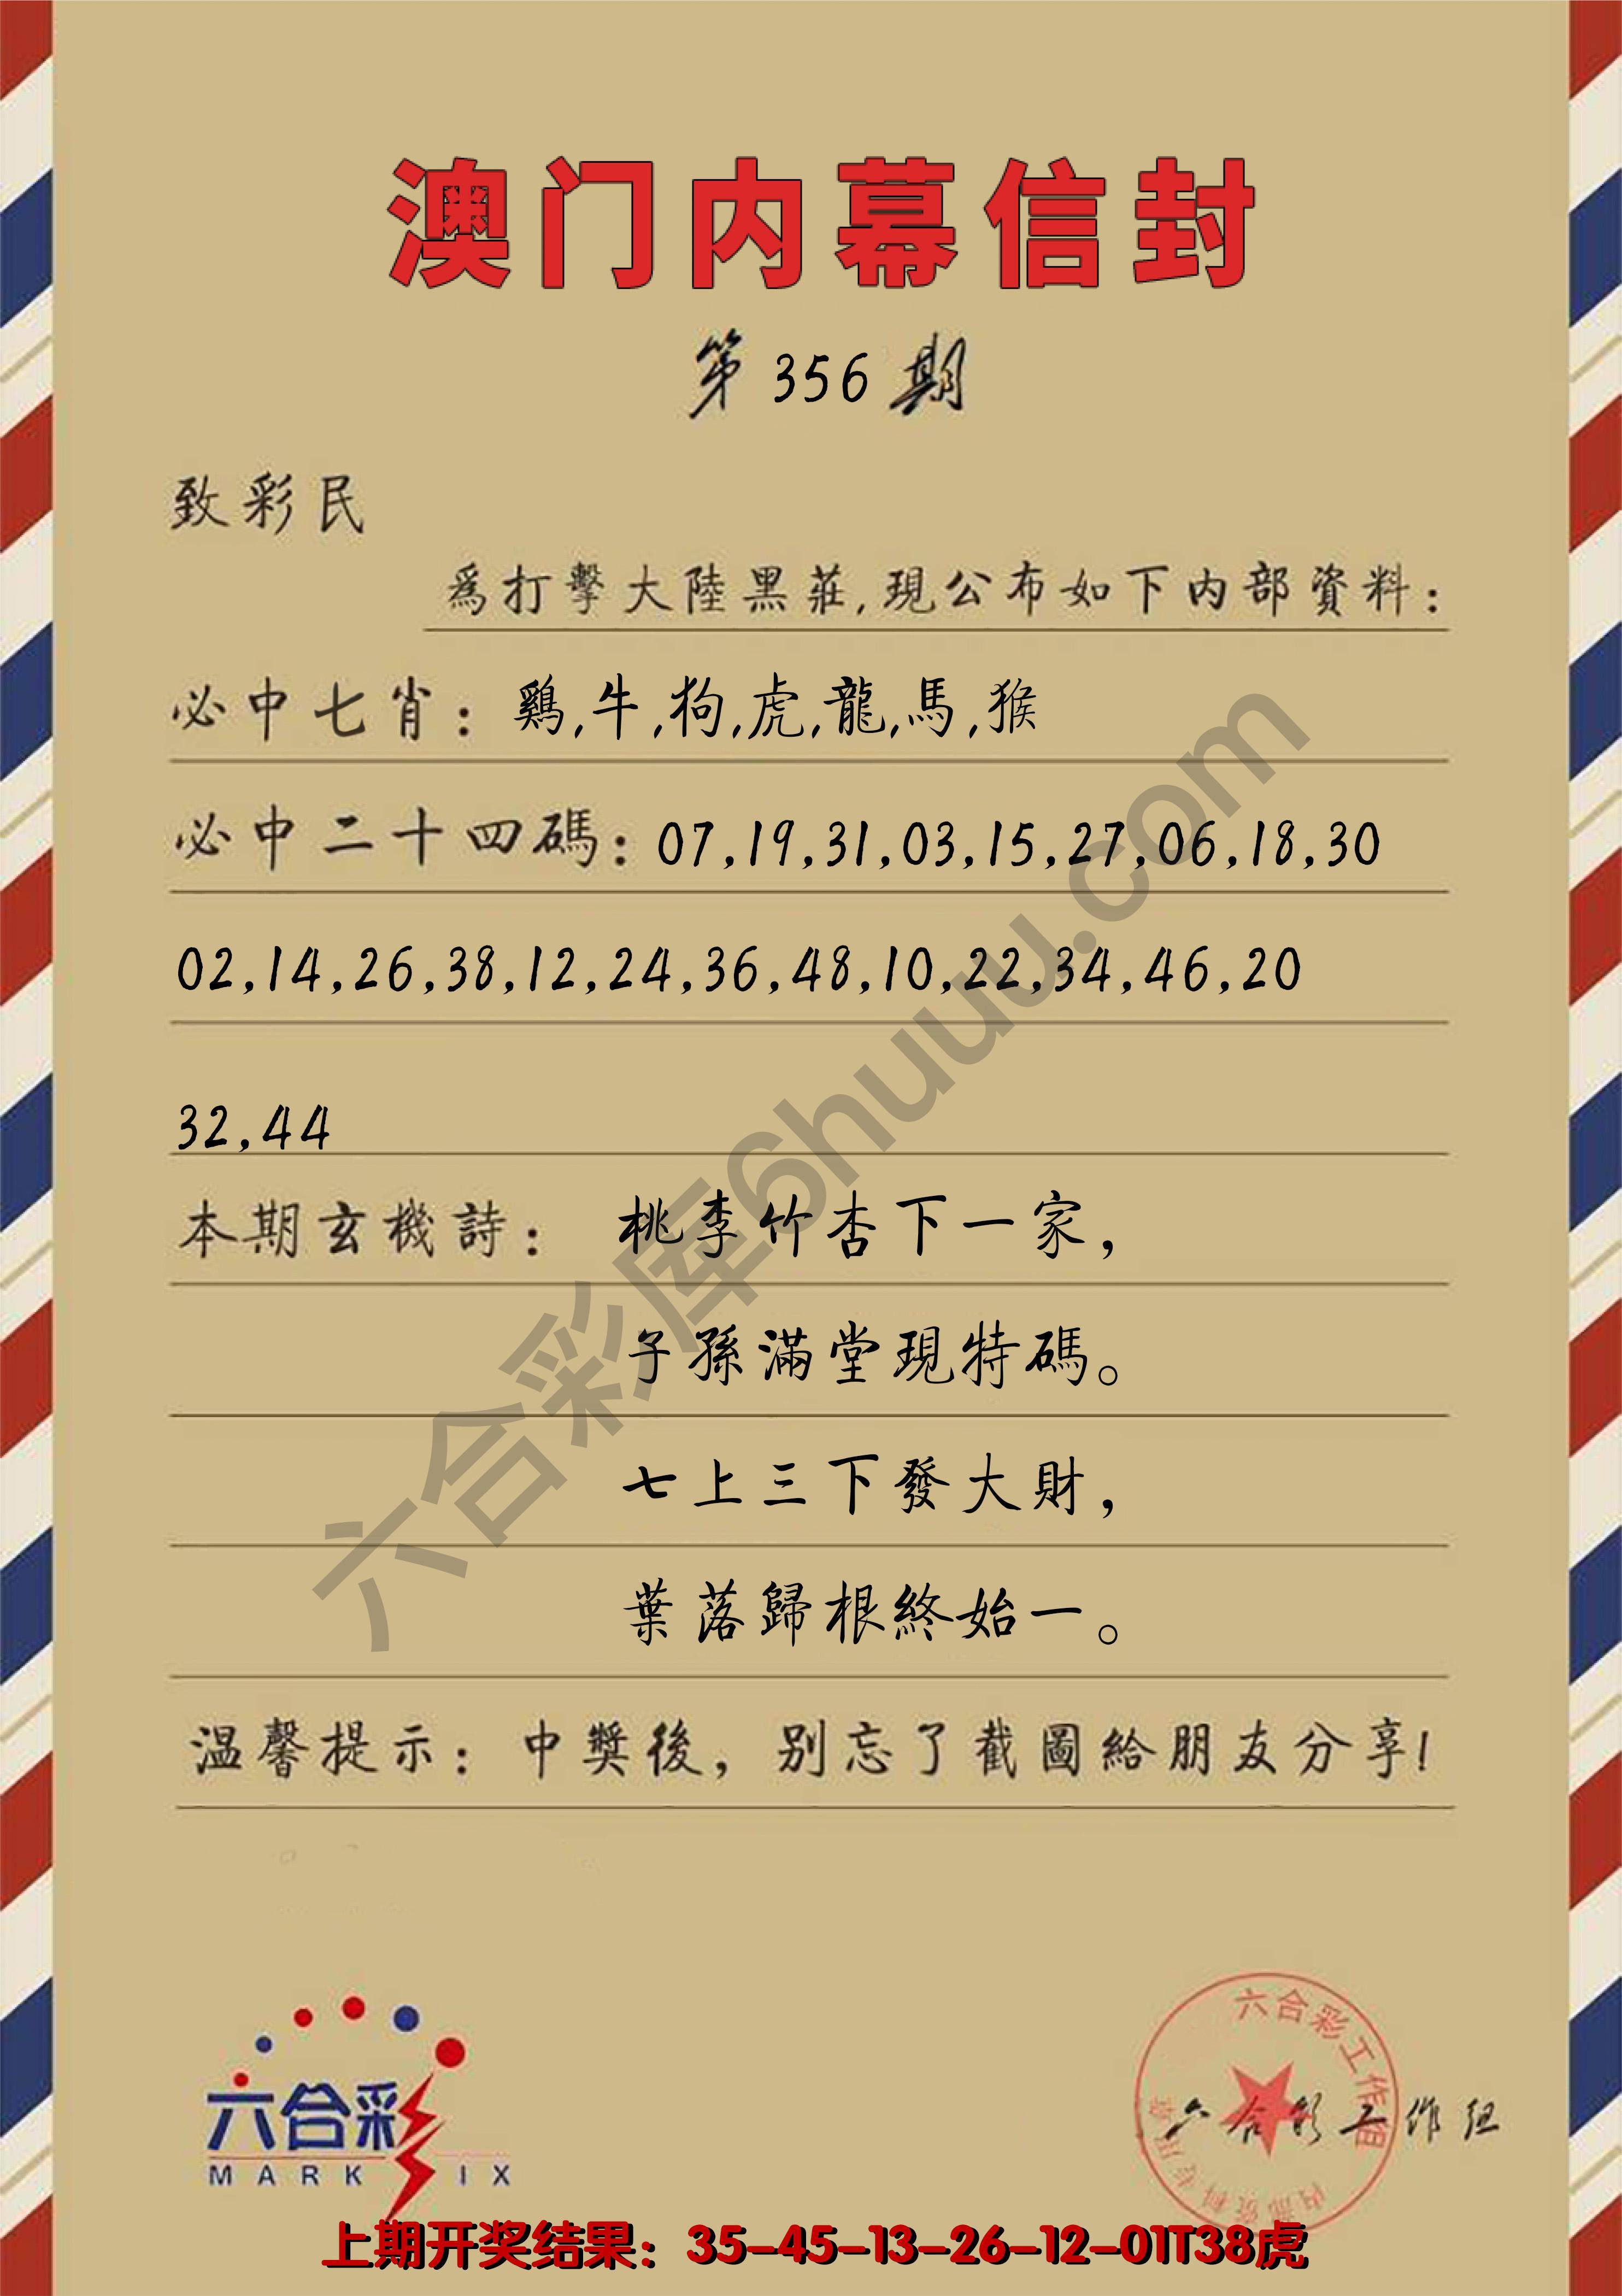 澳门内幕信封
第356期
致彩民
爲打擊大陸黑莊,現公布如下内部資料:
必中七肖: 鷄,牛,狗,虎,龍,馬,猴
必中二十四碼: 07,19,31,03,15,27,06,18,30
02,14,26,38,12,24,36,48,10,22,34,46,20
32,44
本期玄機詩: 桃李竹杏下一家,
子孫滿堂現特碼。
七上三下發大財,
葉落歸根終始一。
温馨提示: 中獎後, 别忘了截圖給朋友分享!
六合彩库6huuu.com
六合彩
MARK IX
六合彩工作组
内部资料专用章
六合彩工作组
上期开奖结果: 35-45-13-26-12-01T38虎